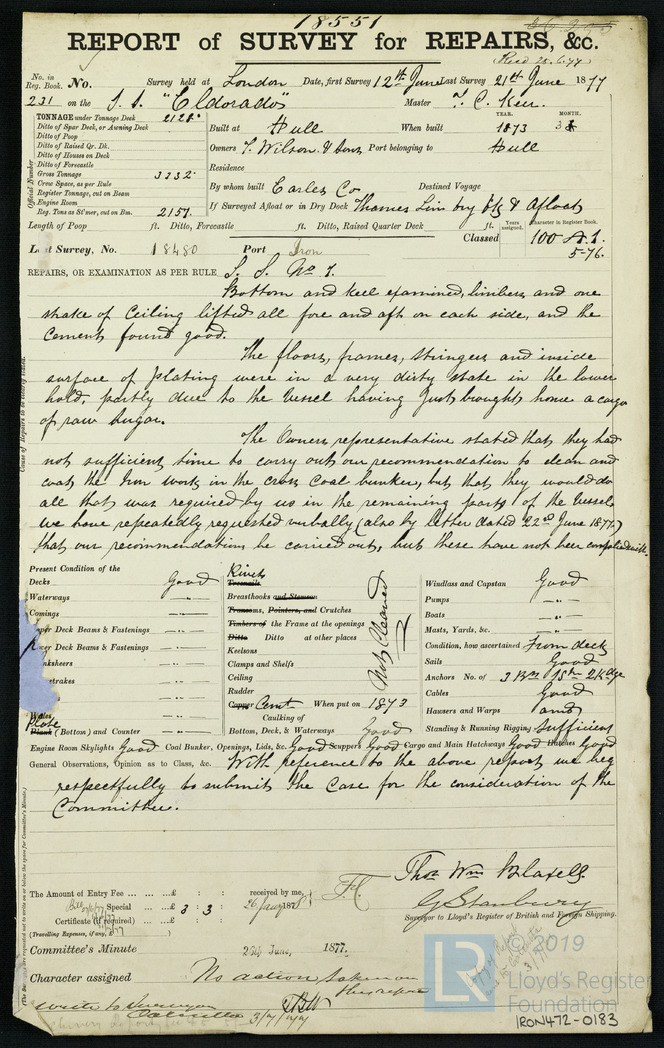 18551
REPORT of SURVEY for REPAIRS, &c.
(Recd 25.6.77
No. in Reg. Book. No. Survey held at London Date, first Survey 12th June Last Survey 21st June 1877
231 on the S. S. "Eldorado" Master
TONNAGE under Tonnage Deck 2128
Ditto of Spar Deck, or Awning Deck
Ditto of Poop
Ditto of Raised Qr. Dk.
Ditto of Houses on Deck
Ditto of Forecastle
Gross Tonnage 3332
Crew Space, as per Rule
Register Tonnage, cut on Beam
Engine Room
Reg. Tons as St'mer, cut on Bm. 2157
Official Number
Built at Hull When built YEAR. 1873 MONTH. 3
Owners T. Wilson & Sons Port belonging to Hull
Residence
By whom built Earles Co Destined Voyage
If Surveyed Afloat or in Dry Dock Thames Iron dry dk & Afloat
Length of Poop ft. Ditto, Forecastle ft. Ditto, Raised Quarter Deck ft.
Years assigned. Character in Register Book.
Classed 100 A.1.
5-76.
Last Survey, No. 18480 Port Iron
REPAIRS, OR EXAMINATION AS PER RULE S. S. No 1.
Bottom and keel examined, limbers and one
strake of Ceiling lifted all fore and aft on each side, and the
Cement found good.
The floors, frames, stringers and inside
surface of plating were in a very dirty state in the lower
hold, partly due to the vessel having just brought home a cargo
of raw sugar.
The Owners representative stated that they had
not sufficient time to carry out our recommendation to clean and
coat the Iron work in the cross Coal bunker, but that they would do
all that was required by us in the remaining parts of the Vessel.
We have repeatedly requested verbally (also by letter dated 22nd June 1877)
that our recommendations be carried out, but these have not been complied with.
Present Condition of the
Decks Good
Waterways — " —
Comings — " —
Upper Deck Beams & Fastenings — " —
Lower Deck Beams & Fastenings — " —
Plate
Plank (Bottom) and Counter — " —
Rivets
Treenails
Breasthooks and Stemson
Transoms, Pointers, and Crutches
Timbers of the Frame at the openings
Ditto Ditto at other places
Keelsons
Clamps and Shelfs
Ceiling
Rudder
Not Cleaned
Copper Cemt. When put on 1873
Caulking of
Bottom, Deck, & Waterways Good
Windlass and Capstan Good
Pumps — " —
Boats — " —
Masts, Yards, &c. — " —
Condition, how ascertained From deck
Sails Good
Anchors No. of 3 Brs 1 Stm 2 Kedge
Cables Good
Hawsers and Warps and
Standing & Running Rigging sufficient
Engine Room Skylights Good Coal Bunker, Openings, Lids, &c. Good Scuppers Good Cargo and Main Hatchways Good Hatches Good
General Observations, Opinion as to Class, &c. With reference to the above report we beg
respectfully to submit the Case for the consideration of the
Committee.
Thos Wm Blaxell.
G Stanbury
Surveyor to Lloyd's Register of British and Foreign Shipping.
The Amount of Entry Fee ... ... ...£ : : received by me,
Special ... ...£ 3 : 3 :
Certificate (if required) ...
(Travelling Expenses, if any, £ )
Committee's Minute 26th June, 1877.
Character assigned No action taken on
this report
Write to Surveyor
Calcutta 3/7/77
© 2019
LR Lloyd's Register
Foundation
IRON472-0183